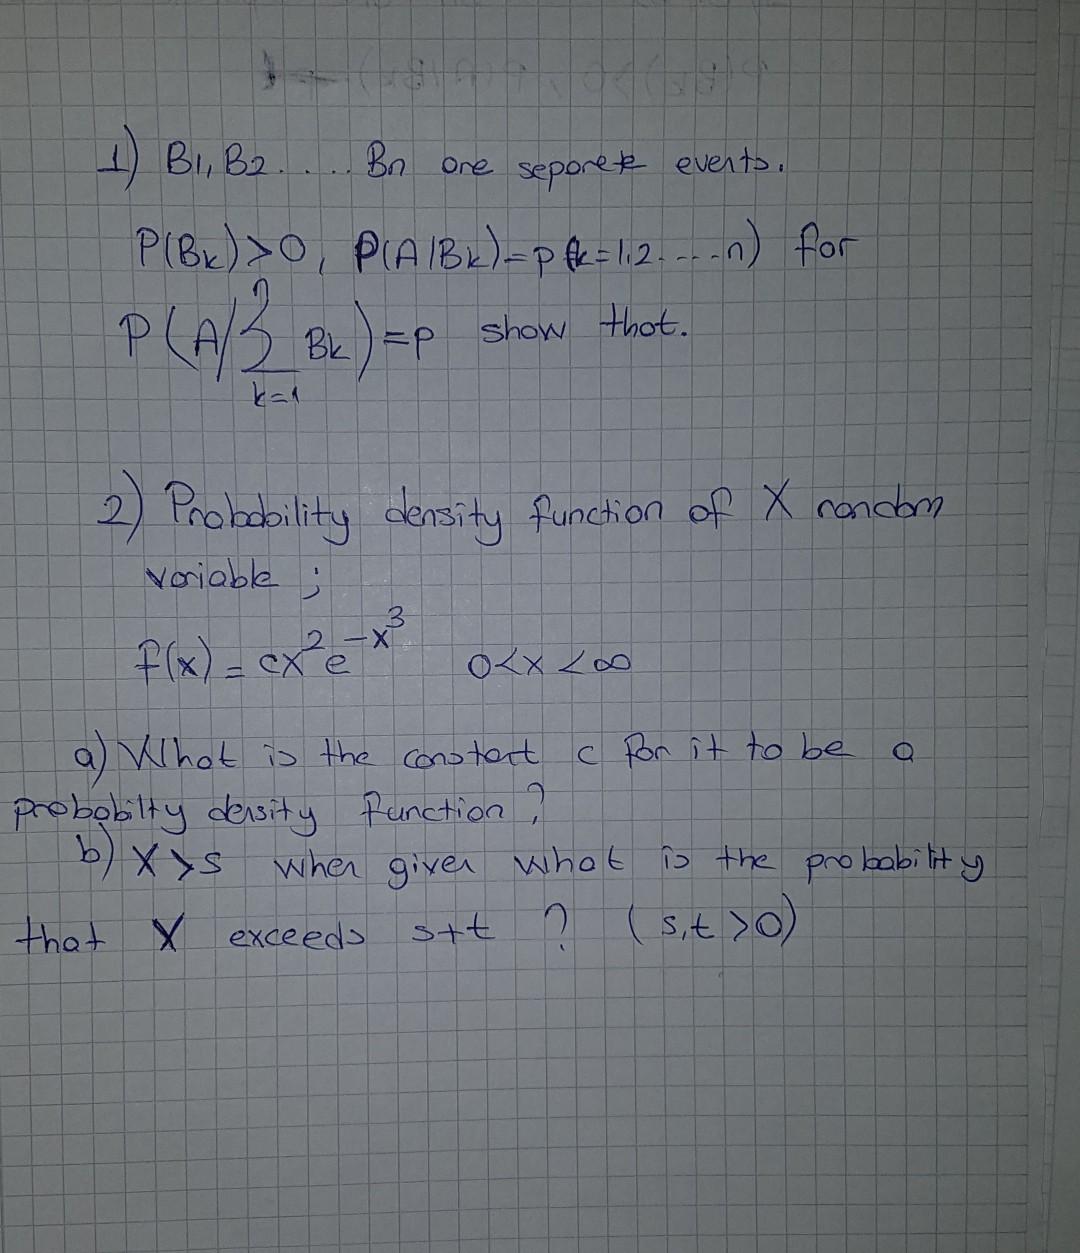 1) B1, B2 ..... Bn are seperete events.
P(Bk)>0, P(A|Bk)=p (k=1,2....n) for
P(A/∑ₖ₌₁ⁿ Bk)=p show that.
2) Probability density function of X random
variable ;
f(x) = cx²e^-x³ 0<x<∞
a) What is the constant c for it to be a
probabilty density function ?
b) X>s when given what is the probability
that X exceeds s+t ? (s,t >0)